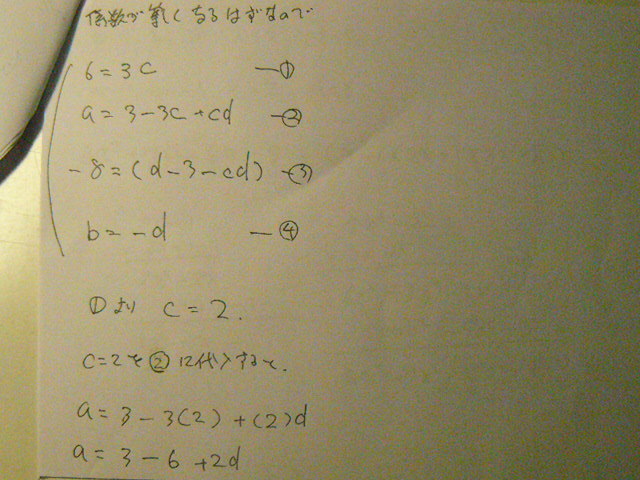 係数が等しくなるはずなので
6 = 3c ー①
a = 3 - 3c + cd ー②
-8 = (d - 3 - cd) ー③
b = -d ー④
①より c = 2.
c=2を②に代入すると.
a = 3 - 3(2) + (2)d
a = 3 - 6 + 2d